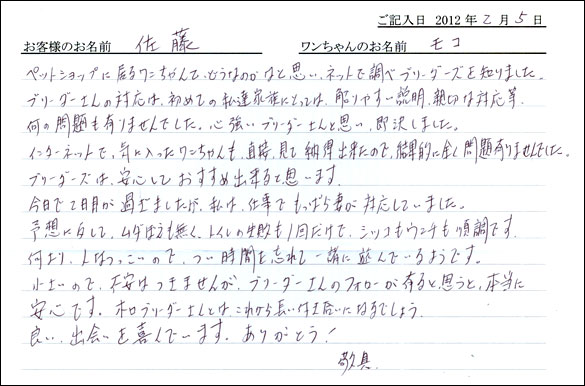 ご記入日 2012年2月5日
お客様のお名前 佐藤 ワンちゃんのお名前 モコ
ペットショップに居るワンちゃんて、どうなのかなと思い、ネットで調べブリーダーズを知りました。
ブリーダーさんの対応は、初めての私達家族にとっては、解りやすい説明、親切な対応等、
何の問題も有りませんでした。心強いブリーダーさんと思い、即決しました。
インターネットで、気に入ったワンちゃんも、直接、見て納得出来たので、結果的に全く問題有りませんでした。
ブリーダーズは、安心しておすすめ出来ると思います。
今日で2日目が過ぎましたが、私は、仕事でもっぱら妻が対応していました。
予想に反して、ムダぼえも無く、トイレの失敗も1回だけで、シッコもウンチも順調です。
何より、人なつっこいので、つい時間を忘れて一緒に遊んでいるようです。
小さいので、不安はつきませんが、ブリーダーさんのフォローが有ると思うと、本当に
安心です。ブリーダーさんとはこれから長い付き合いになるでしょう。
良い、出会いを喜んでいます。ありがとう!
敬具